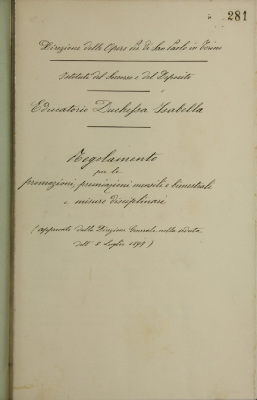 281
Direzione delle Opere Pie di San Paolo in Torino
Istituti del Soccorso e del Deposito
Educatorio Duchessa Isabella
Regolamento
per le
promozioni, premiazioni mensili e bimestrali
e misure disciplinari
(approvato dalla Direzione Generale nella seduta
dell' 8 Luglio)